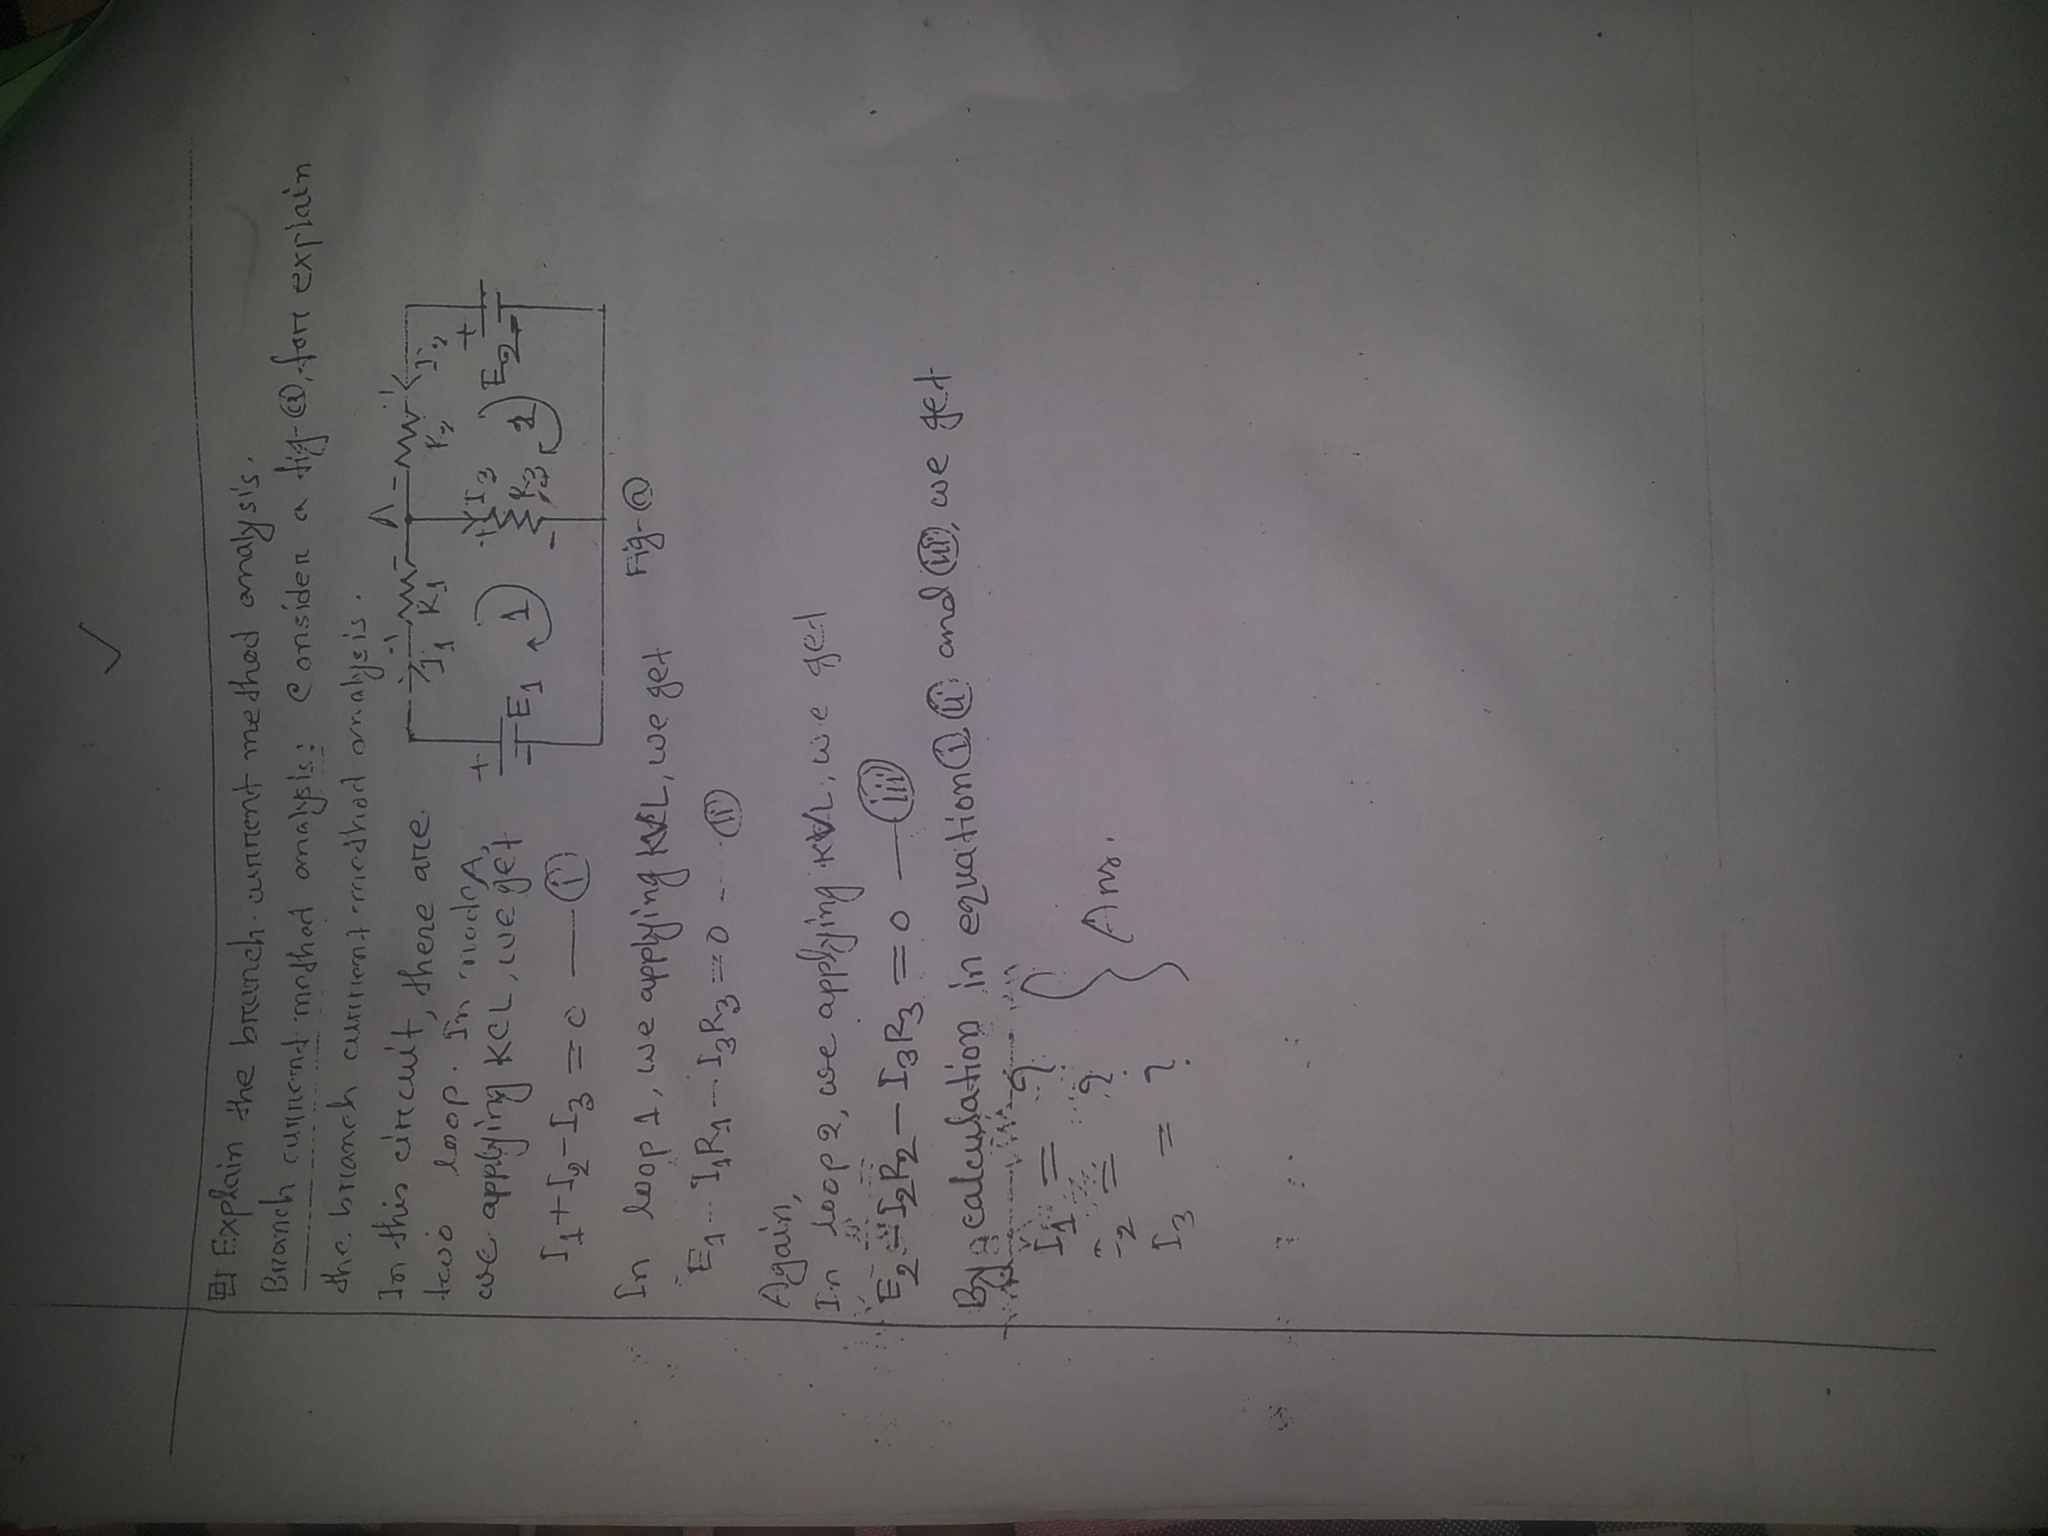 Explain the branch current method analysis.
Branch current method analysis: Consider a fig-ⓐ, for explain
the branch current method analysis.
In this circuit, there are
two loop. In node A,
we applying KCL, we get
I₁+I₂-I₃ = 0 — (i)
A
I₁ R₁
R₂ I₂
I₃
R₃
+ E₁ -
1
2
E₂ + -
Fig-ⓐ
In loop 1, we applying KVL, we get
E₁ - I₁R₁ - I₃R₃ = 0 --- (ii)
Again,
In loop 2, we applying KVL, we get
E₂ - I₂R₂ - I₃R₃ = 0 — (iii)
By calculation in equation (i) (ii) and (iii), we get
I₁ = ?
I₂ = ?
I₃ = ?
} Ans.